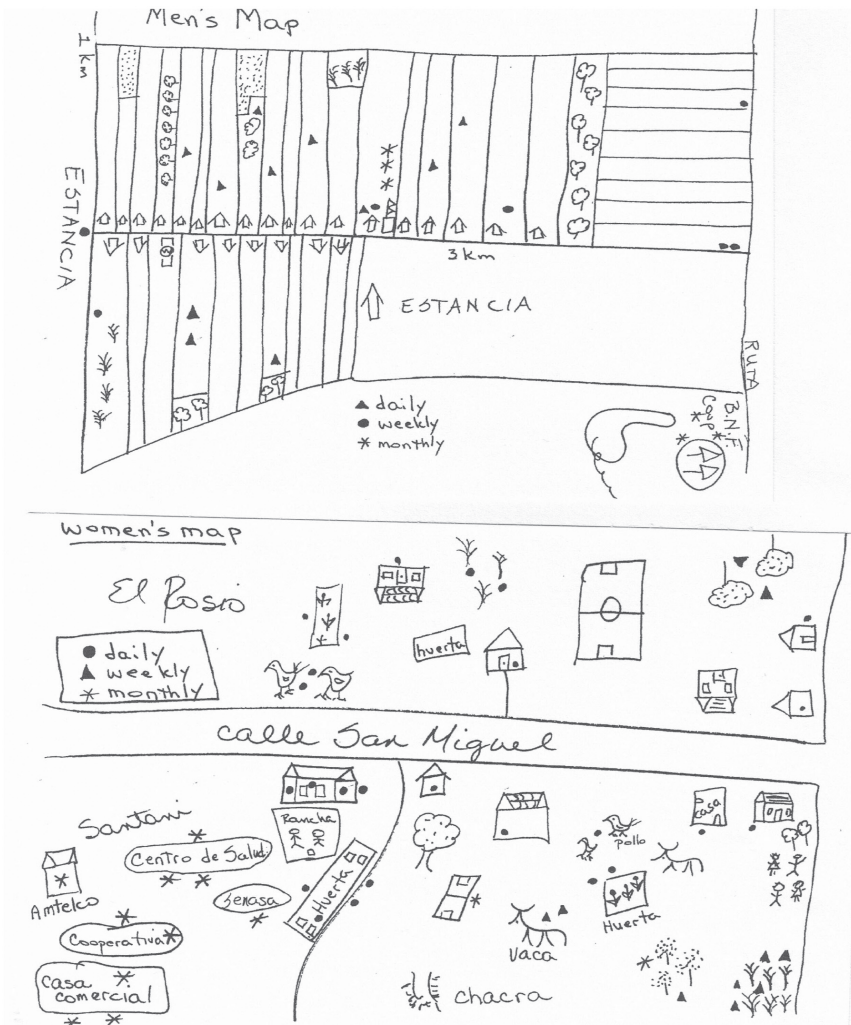 Men's Map
1 km
ESTANCIA
3 km
ESTANCIA
RUTA
▲ daily
● weekly
* monthly
B.N.F.
Coop
women's map
El Rosio
● daily
▲ weekly
* monthly
huerta
calle San Miguel
Santani
Rancha
Centro de Salud
Amtelco
Senasa
Huerta
Cooperativa
casa
comercial
casa
Pollo
Huerta
Vaca
chacra